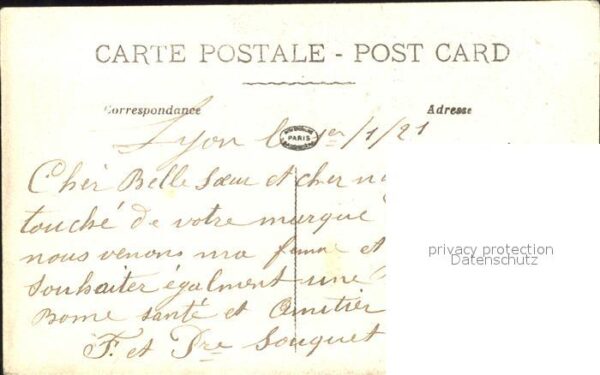 CARTE POSTALE - POST CARD
Correspondance
Adresse
PARIS
Lyon le 1er/1/21
Cher Belle sœur et cher
touché de votre marque
privacy protection
nous venons ma femme et
Datenschutz
souhaiter égalment une
Bonne santé et Amitier
F. et Pre Souquet